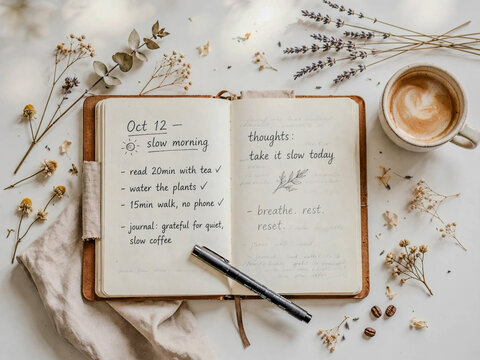 Oct 12 —
slow morning
- read 20min with tea ✓
- water the plants ✓
- 15min walk, no phone ✓
- journal: grateful for quiet,
slow coffee
thoughts:
take it slow today
- breathe. rest.
reset.